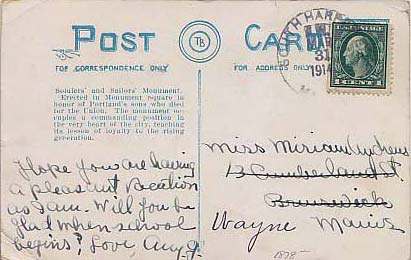 POST CARD
FOR CORRESPONDENCE ONLY
TB
FOR ADDRESS ONLY
SOUTH HARP
31
1914
1 CENT 1
Soldiers' and Sailors' Monument.
Erected in Monument Square in
honor of Portland's sons who died
for the Union. The monument oc-
cupies a commanding position in
the very heart of the city, teaching
its lesson of loyalty to the rising
generation.
Hope you are having
a pleasant Vacation
as I am. Will you be
glad when school
begins? Love,
Miss Miriam Andrews
13 Cumberland St.
Brunswick
Wayne Maine
1878